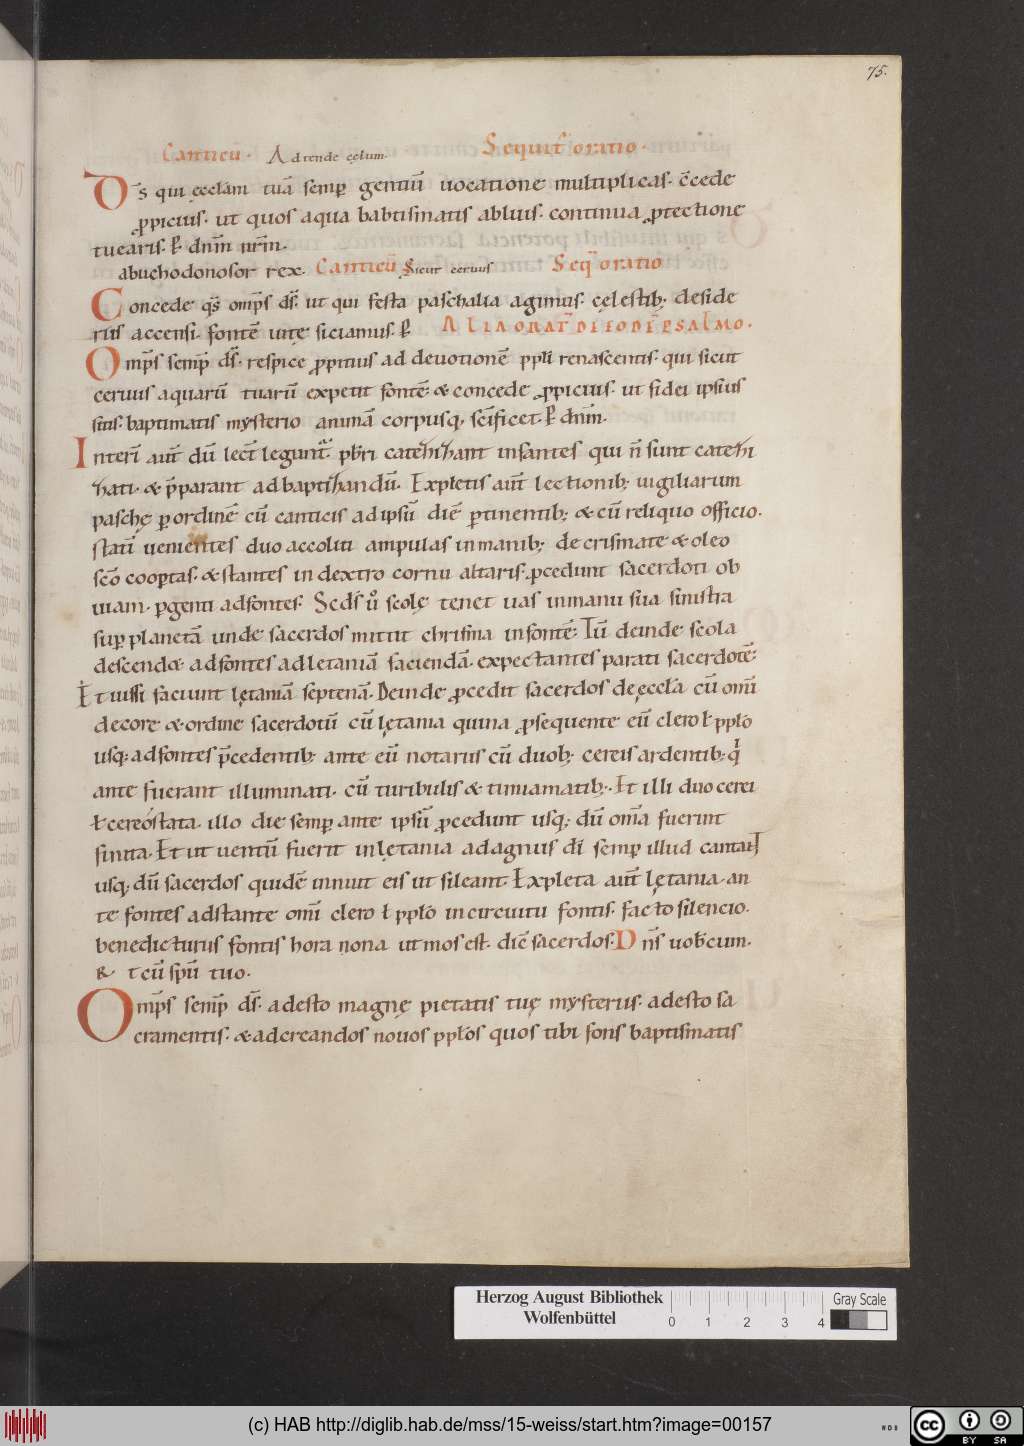 75.
Canticū. Adtende cęlum. Sequit̄ oratio.
D̄s qui ęccłam tuā semꝑ gentiū uocatione multiplicas. c̄cede
ꝓpicius. ut quos aqua babtismatis abluis. continua ꝓtectione
tuearis. P̄ dn̄m nr̄m.
abuchodonosor rex. Canticū Sicut ceruus Seq̄ oratio
Concede qs̄ omp̄s ds̄. ut qui festa paschalia agimus. cęlestib; deside
riis accensi. fontē uitę siciamus. P̄ ALIA ORAT̄ DE EODĒ PSALMO.
Omp̄s semp̄ ds̄. respice ꝓpitius ad deuotionē ppłi renascentis. qui sicut
ceruus aquarū tuarū expetit fontē. & concede ꝓpicius. ut fidei ipsius
sitis. baptimatis mysterio animā corpusq; sc̄ificet. P̄ dn̄m.
Interī aut̄ dū lect̄ legunt̄. pb̄ri catehihant infantes qui n̄ sunt catehi
hati. & p̄parant ad baptihandū. Expletis aut̄ lectionib; uigiliarum
paschę ꝑ ordinē cū canticis ad ipsū diē ꝑtinentib; & cū reliquo officio.
statī uenientes duo accoliti ampulas in manib; de crismate & oleo
sc̄o cooꝑtas. & stantes in dextro cornu altaris. ꝓcedunt sacerdoti ob
uiam. ꝑgenti ad fontes. Scds̄ ů scolę tenet uas in manu sua sinistra
suꝑ planetā unde sacerdos mittit chrisma in fontē. Tū deinde scola
descend& ad fontes ad letaniā faciendā. expectantes parati sacerdotē:
Et iussi faciunt lętaniā septenā. Deinde ꝓcedit sacerdos de ęccła cū omī
decore & ordine sacerdotū cū lętania quina ꝓsequente eū clero ł ppło
usq; ad fontes p̄cedentib; ante eū notariis cū duob; cereis ardentib; q̇
ante fuerant illuminati. cū turibulis & timiamatib;. Et illi duo cerei
ł cereóstata. illo die semꝑ ante ipsū ꝓcedunt usq; dū om̄a fuerint
finita. Et ut uentū fuerit in lętania ad agnus dī semꝑ illud cantat̄
usq; dū sacerdos quidē innuit eis ut sileant. Expleta aut̄ lętania. an
te fontes adstante omī clero ł ppło in circuitu fontis. facto silencio.
benedicturus fontis hora nona ut mos est. dic̄ sacerdos. Dn̄s uob̄cum.
R Et cū spū tuo.
Omp̄s semp̄ ds̄. adesto magnę pietatis tuę mysteriis. adesto sa
cramentis. & ad creandos nouos ppłos quos tibi fons baptismatis
Herzog August Bibliothek
Wolfenbüttel
0 1 2 3 4
Gray Scale
(c) HAB http://diglib.hab.de/mss/15-weiss/start.htm?image=00157
cc BY SA